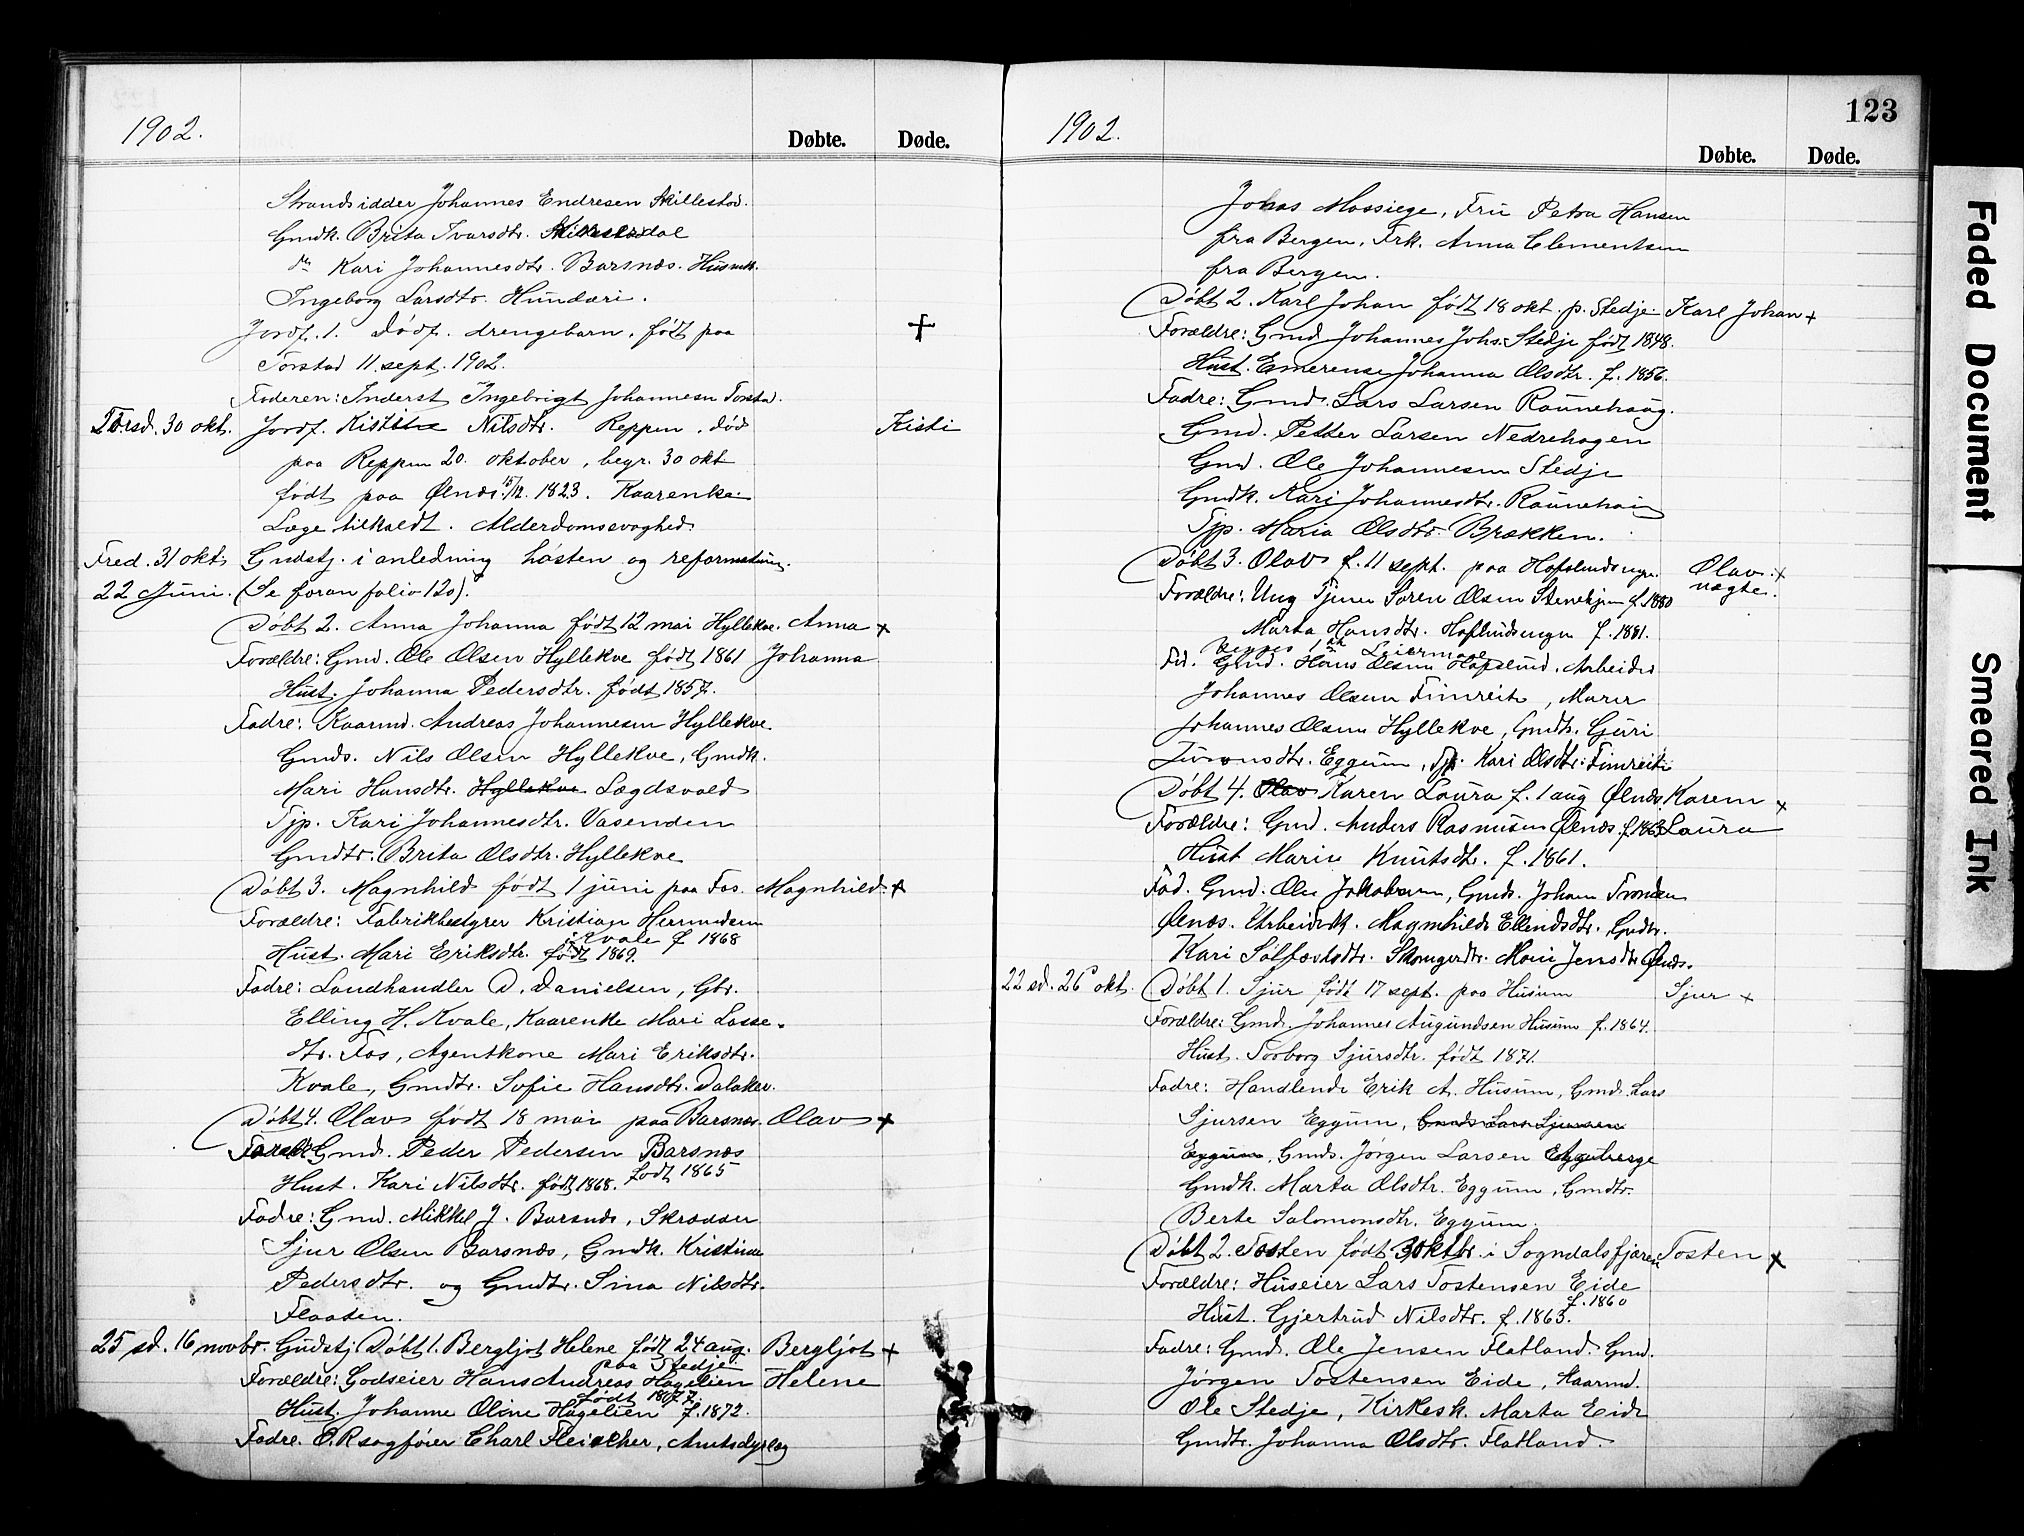 1902.
Døbte. Døde.
Strandsidder Johannes Endresen Skillestad.
Gmdk. Brita Ivarsdtr.
Kari Johannesdtr. Barsnes. Husmk.
Ingeborg Larsdtr. Hundæri.
Jordf. 1. Dødf. drengebarn, født paa
Torstad 11 sept. 1902.
Faderen: Inderst Ingebrigt Johannesen Torstad.
Torsd. 30 okt. Jordf. Kisti Nilsdtr. Reppen, død Kisti
paa Reppen 20. oktober, begr. 30 okt
født paa Ølnes 15/12. 1823. Kaarenke.
Læge tilkaldt. Alderdomssvaghed.
Fred. 31 okt. Gudstj. i anledning høsten og reformationen.
22 Juni. (Se foran folio 120).
Døbt 2. Anna Johanna født 12 mai Hyllekve. Anna +
Forældre: Gmd. Ole Olsen Hyllekve født 1861 Johanna
Hust. Johanna Pedersdtr. født 1857.
Fadre: Kaarmd. Andreas Johannesen Hyllekve
Gmds. Nils Olsen Hyllekve, Gmdk.
Mari Hansdtr. Hyllekve Lægdsvold
Tjp. Kari Johannesdtr. Vasenden
Gmdtr. Brita Olsdtr. Hyllekve
Døbt 3. Magnhild født 1 juni paa Fos. Magnhild. +
Forældre: Fabrikbestyrer Kristian Hermundsen
Kvale f 1868
Hust. Mari Eriksdtr. født 1869.
Fadre: Landhandler D. Danielsen, Gbr.
Elling H. Kvale, Kaarenke Mari Lasse-
dtr. Fos, Agentkone Mari Eriksdtr.
Kvale, Gmdtr. Sofie Hansdtr. Dalaker.
Døbt 4. Olav født 18 mai paa Barsnes. Olav +
Foreldr: Gmd. Peder Pedersen Barsnes
født 1865
Hust. Kari Nilsdtr. født 1868.
Fadre: Gmd. Mikkel J. Barsnes, Skrædder
Sjur Olsen Barsnes, Gmdk. Kristine
Pedersdtr. og Gmdtr. Sina Nilsdtr.
Flaaten.
25 sd. 16 novbr. Gudstj Døbt 1. Bergljot Helene født 24 aug. Bergljot +
paa Stedje
Forældre: Godseier Hans Andreas Hagelien Helene
Hust. Johanne Oline Hagelien f. 1872.
Fadre. O.R sagfører Charl Fleischer, Amtsdyrlæg
123
1902.
Døbte. Døde.
Johas Mossiege, Fru Petra Hansen
fra Bergen, Frk. Anna Clementsen
fra Bergen.
Døbt 2. Karl Johan født 18 okt. p. Stedje Karl Johan +
Forældre: Gmd Johannes Johs. Stedje født 1848.
Hust. Emerense Johanna Olsdtr. f. 1856.
Fadre: Gmds. Lars Larsen Raunehaug.
Gmd. Petter Larsen Nedrehagen
Gmd. Ole Johannesen Stedje
Gmdk. Kari Johannesdtr. Raunehaug
Tjp. Maria Olsdtr. Brækken.
Døbt 3. Olav f. 11 sept. paa Hofslundsengen. Olav +
uægte.
Forældre: Ung Tjener Søren Olsen Stenehjem f. 1880
Marta Hansdtr. Hofslundsengen f. 1881.
Begges 1ste Leiermaal
Fad. Gmd. Hans Olsen Hofslund, Arbeider
Johannes Olsen Fimreite, Murer
Johannes Olsen Hyllekve, Gmdk. Guri
Eggum, Tjp. Kari Olsdtr. Fimreite
Døbt 4. Olav Karen Laura f. 1 aug Ølnes. Karen +
Forældre: Gmd. Anders Rasmusen Ølnes. f. 1863 Laura
Hust Marie Knutsdtr. f. 1861.
Fad. Gmd. Ole Jakobsen, Gmds. Johan Tronsen
Ølnes. Arbeidsk. Magnhilde Ellendsdtr. Gmdtr.
Kari Sølfæstsdtr. Skomgerdtr. Mari Jensdtr Ølnes.
22 sd. 26 okt. Døbt 1. Sjur født 17 sept. paa Husum Sjur +
Forældre: Gmd. Johannes Augundsen Husum f. 1864.
Hust. Torborg Sjursdtr. født 1871.
Fadre: Handlende Erik A. Husum, Gmd. Lars
Sjursen Eggum, Gmds Lars Sjursen
Eggum, Gmds. Jørgen Larsen Eggeberge
Gmdk. Marta Olsdtr. Eggum, Gmdtr.
Berte Salomonsdtr. Eggum.
Døbt 2. Tosten født 3 oktbr. i Sogndalsfjæren Tosten +
Forældre: Huseier Lars Tostensen Eide
f. 1860
Hust. Gjertrud Nilsdtr. f. 1863.
Fadre: Gmd. Ole Jensen Flatland. Gmd.
Jørgen Tostensen Eide, Kaarmd.
Ole Stedje, Kirkesk. Marta Eide
Gmdtr. Johanna Olsdtr. Flatland.
Faded Document
Smeared Ink